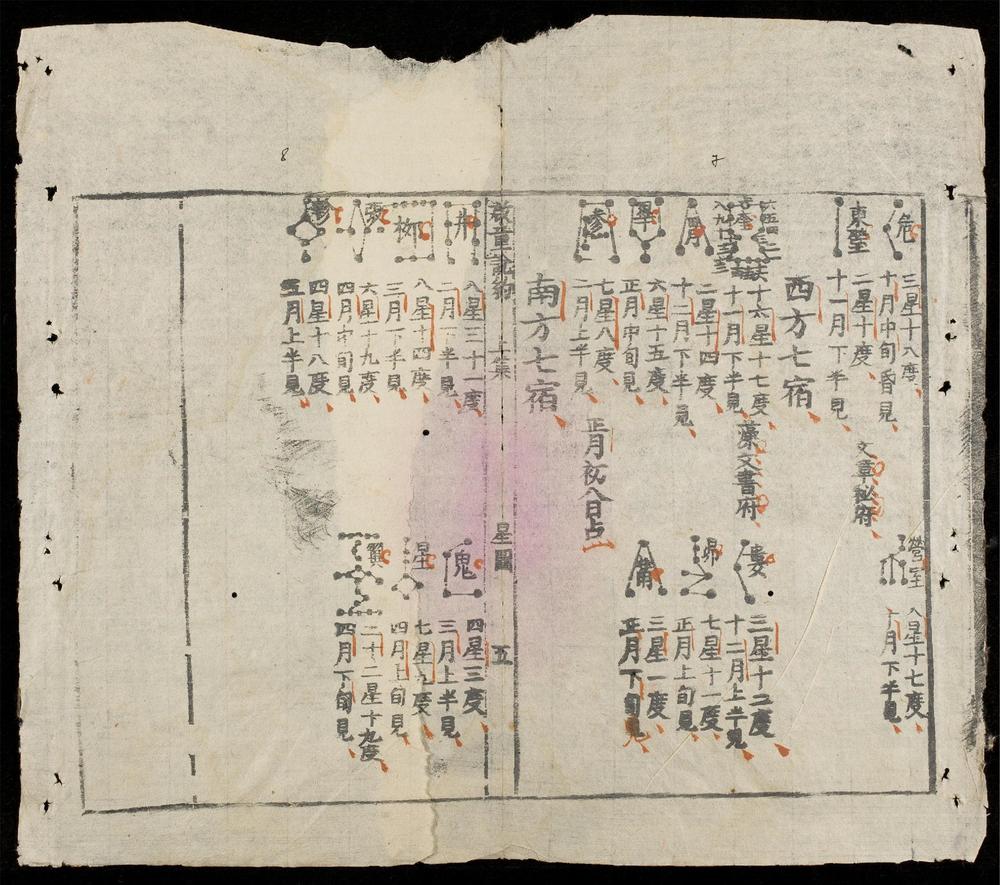 危
三星十八度
十月中旬昏見
營室
八星十七度
十月下半見
東壁
二星十度
十一月下半見
文章秘府
西方七宿
奎
十六星十七度
十一月下半見
藻文書府
婁
三星十二度
十二月上半見
胃
二星十四度
十二月下半見
昴
七星十一度
正月上旬見
畢
六星十五度
正月中旬見
觜
三星一度
正月下旬見
參
七星八度
二月上半見
南方七宿
正月初八日占
啟童說約 上集 星圖 五
井
八星三十一度
二月下半見
鬼
四星三度
三月上半見
柳
八星十四度
三月下半見
星
七星九度
四月上旬見
張
六星十九度
四月中旬見
翼
二十二星十九度
四月下旬見
軫
四星十八度
五月上半見